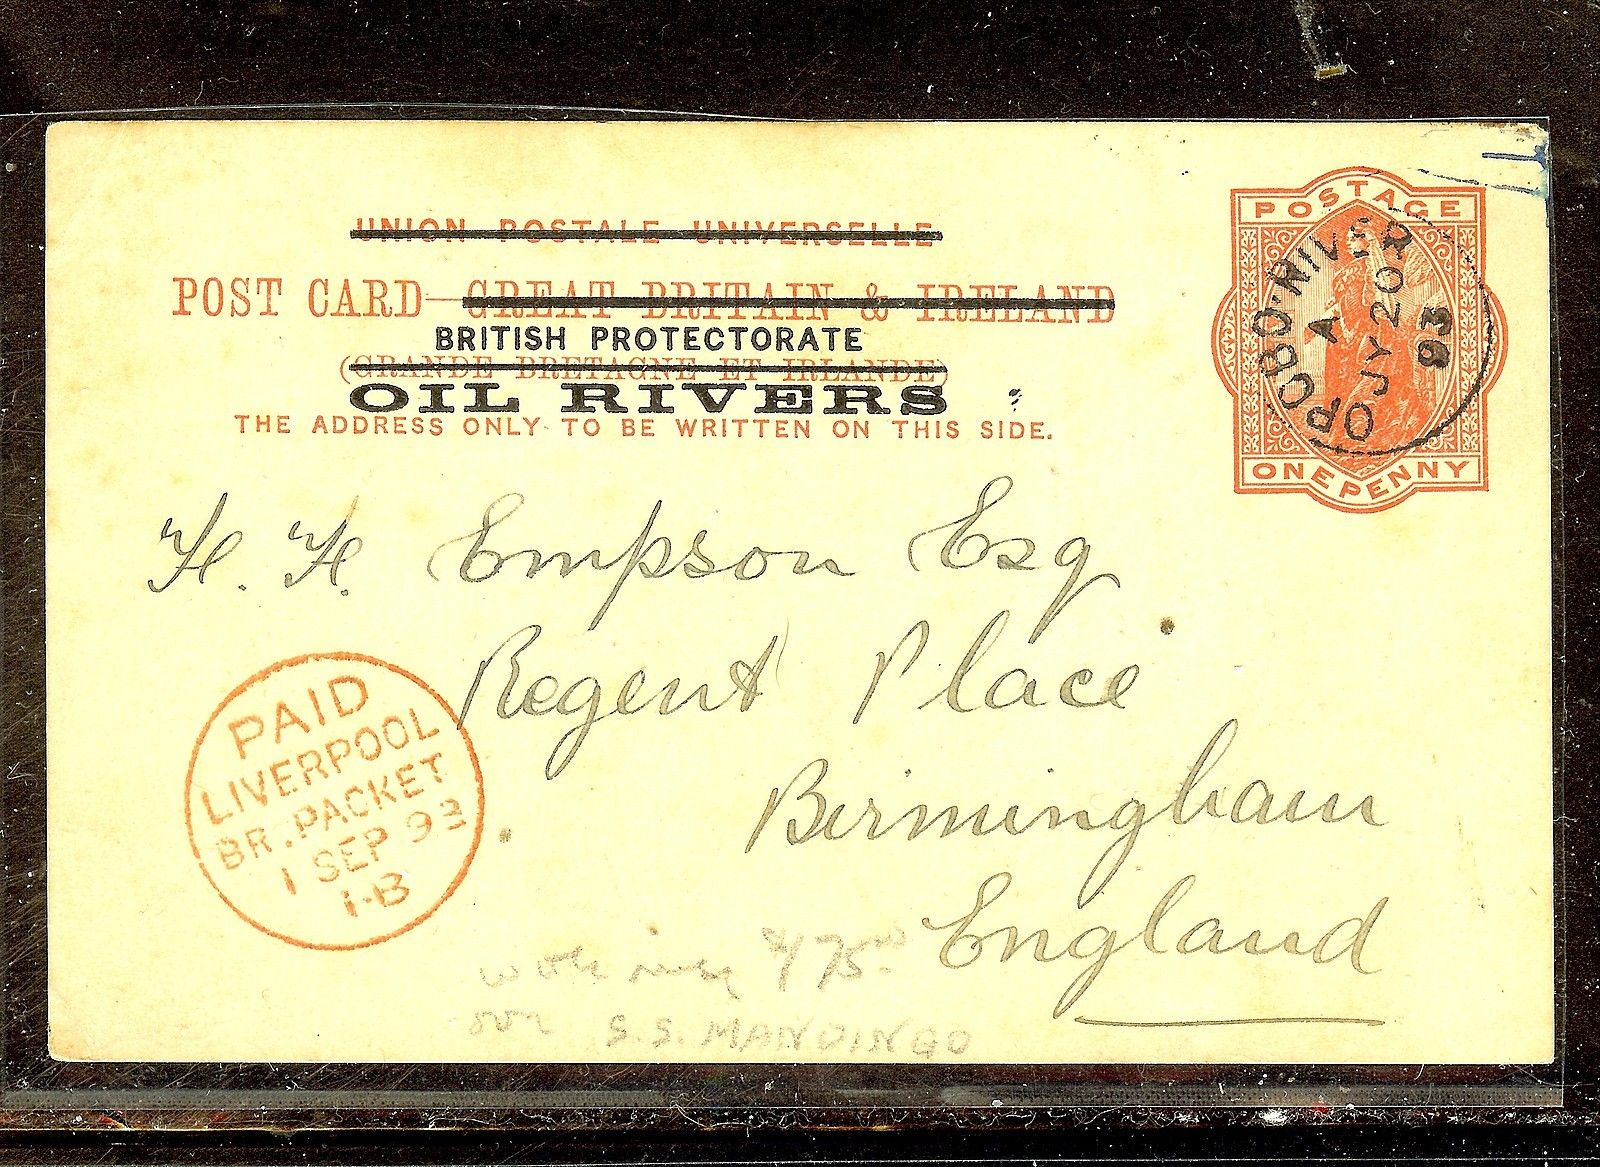 UNION POSTALE UNIVERSELLE
POST CARD — GREAT BRITAIN & IRELAND
BRITISH PROTECTORATE
(GRANDE BRETAGNE ET IRLANDE)
OIL RIVERS
THE ADDRESS ONLY TO BE WRITTEN ON THIS SIDE.
POSTAGE
ONE PENNY
OPOBO RIVER
A
JY 20
93
H. H. Empson Esq
Regent Place
Birmingham
England
PAID
LIVERPOOL
BR. PACKET
1 SEP 93
1·B
S.S. MANDINGO